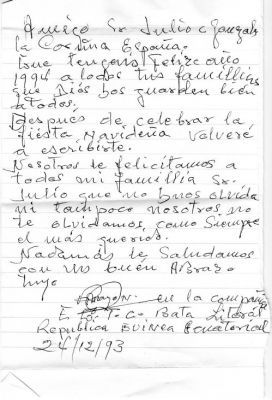 Amigo Sr Julio c Gonzals
la Coruña España.
Que tengans Felizaño
1994 a todos tus famillias
que Diós bos guarden bien
a todos.
Despues de celebrar la
fiesta Navideña volveré
a escribirte.
Nosotros te felicitamos a
todos mi famillia Sr.
Julio que no bnos olvida
ni tampoco nosotros, no
te olvidamos, como Siempre
el más queríos.
Nadamás te Saludamos
con un buén ABrazo
tuyo
en la compañia
E. T. C. Bata Litoral
Republica GUINEA Ecuatorial
24/12/93